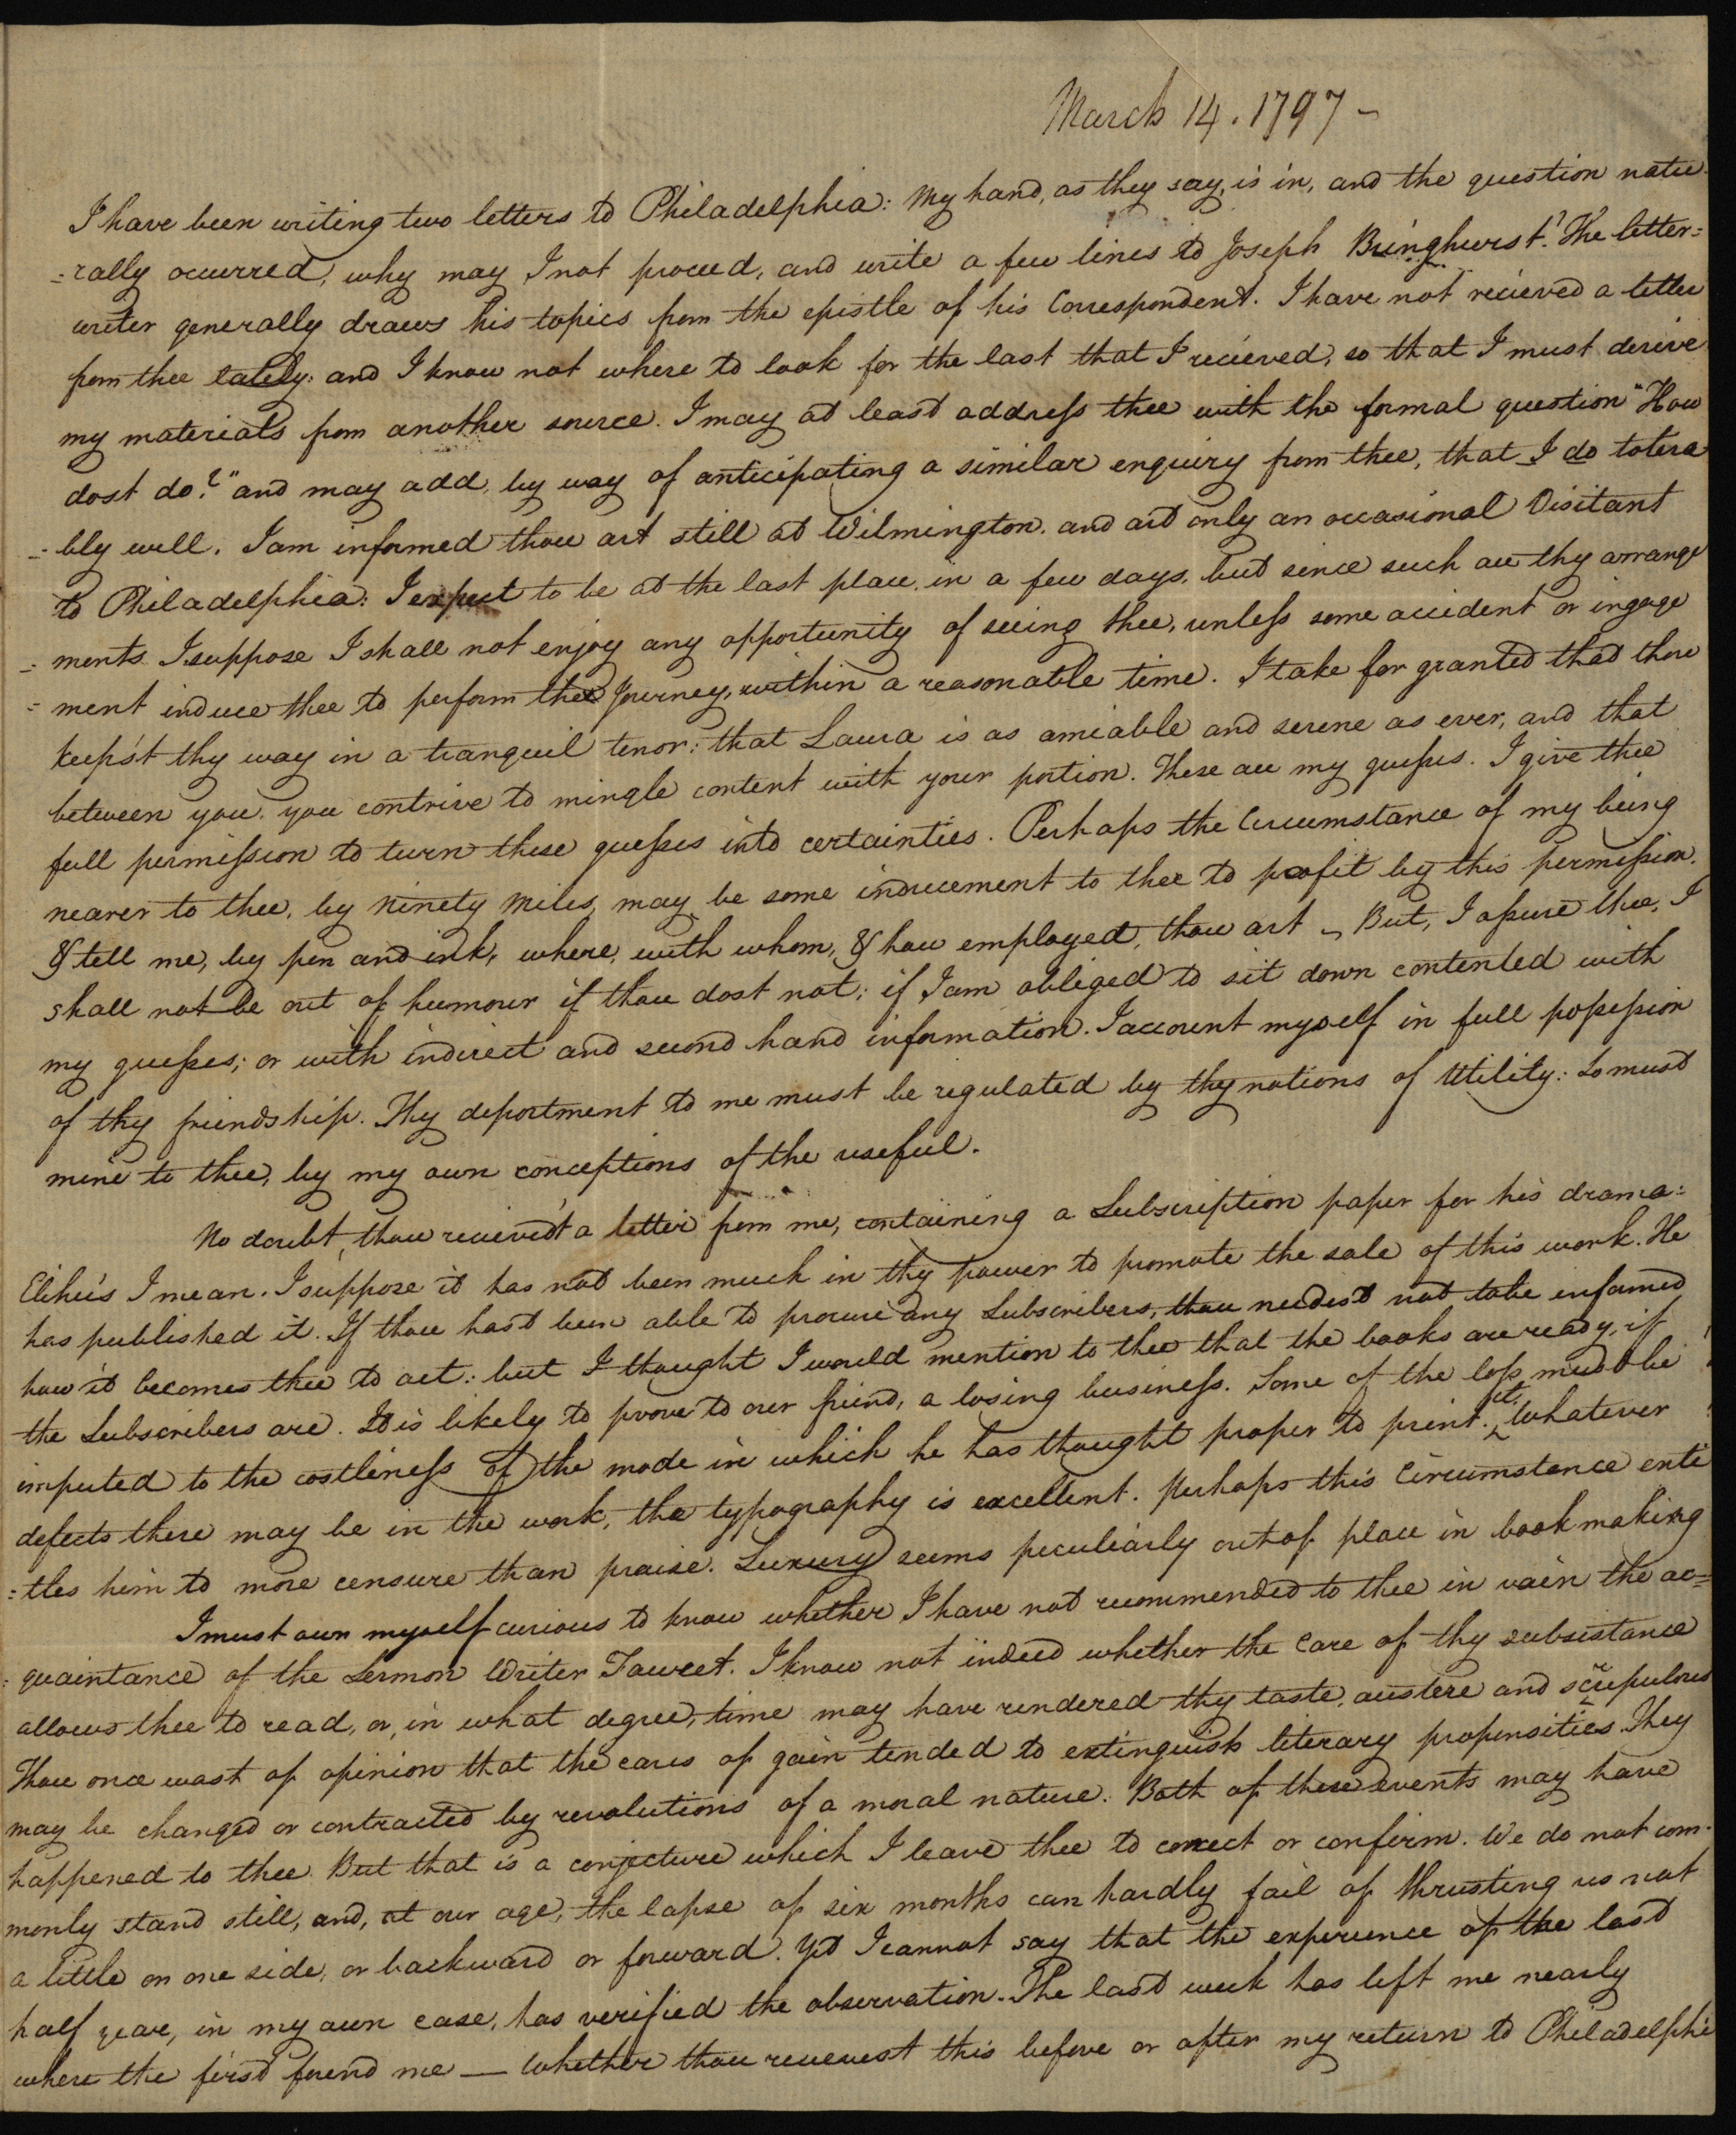 March 14. 1797 -
I have been writing two letters to Philadelphia: My hand, as they say, is in, and the question natu
=rally occurred, why may I not proceed, and write a few lines to Joseph Bringhurst? The letter=
writer generally draws his topics from the epistle of his Correspondent. I have not recieved a letter
from thee lately: and I know not where to look for the last that I recieved, so that I must derive
my materials from another source. I may at least address thee with the formal question "How
dost do?" and may add, by way of anticipating a similar enquiry from thee, that I do tolera
=bly well. I am informed thou art still at Wilmington. and art only an occasional Visitant
to Philadelphia: I expect to be at the last place, in a few days, but since such are thy arrange
=ments I suppose I shall not enjoy any opportunity of seeing thee, unless some accident or ingage
=ment induce thee to perform the Journey, within a reasonable time. I take for granted that thou
keep'st thy way in a tranquil tenor: that Laura is as amiable and serene as ever, and that
between you, you contrive to mingle content with your portion. These are my guesses. I give thee
full permission to turn these guesses into certainties. Perhaps the Circumstance of my being
nearer to thee, by Ninety Miles, may be some inducement to thee to profit by this permission.
& tell me, by pen and ink, where, with whom, & how employed, thou art - But, I assure thee, I
shall not be out of humour if thou dost not; if I am obliged to sit down contented with
my guesses; or with indirect and second hand information. I account myself in full possession
of thy friendship. Thy deportment to me must be regulated by thy notions of Utility: So must
mine to thee, by my own conceptions of the useful.
No doubt, thou recieved'st a letter from me, containing a Subscription paper for his drama:
Elihu's I mean. I suppose it has not been much in thy power to promote the sale of this work. He
has published it. If thou hast been able to procure any Subscribers, thou needest not to be informed
how it becomes thee to act: but I thought I would mention to thee that the books are ready, if
the Subscribers are. It is likely to prove to our friend, a losing business. Some of the loss must be
imputed to the costliness of the mode in which he has thought proper to print it. Whatever
defects there may be in the work, the typography is excellent. Perhaps this Circumstance enti
=tles him to more censure than praise. Luxury seems peculiarly out of place in book making
I must own myself curious to know whether I have not recommended to thee in vain the ac=
quaintance of the Sermon Writer Fawcet. I know not indeed whether the Care of thy subsistance
allows thee to read, or, in what degree, time may have rendered thy taste, austere and scrupulous
Thou once wast of opinion that the cares of gain tended to extinguish literary propensities. They
may be changed or contracted by revolutions of a moral nature. Both of these events may have
happened to thee. But that is a conjecture which I leave thee to correct or confirm. We do not com-
monly stand still, and, at our age, the lapse of six months can hardly fail of thrusting us not
a little on one side, or backward or forward. Yet I cannot say that the experience of the last
half year, in my own case, has verified the observation. The last week has left me nearly
where the first found me — Whether thou recievest this before or after my return to Philadelphi